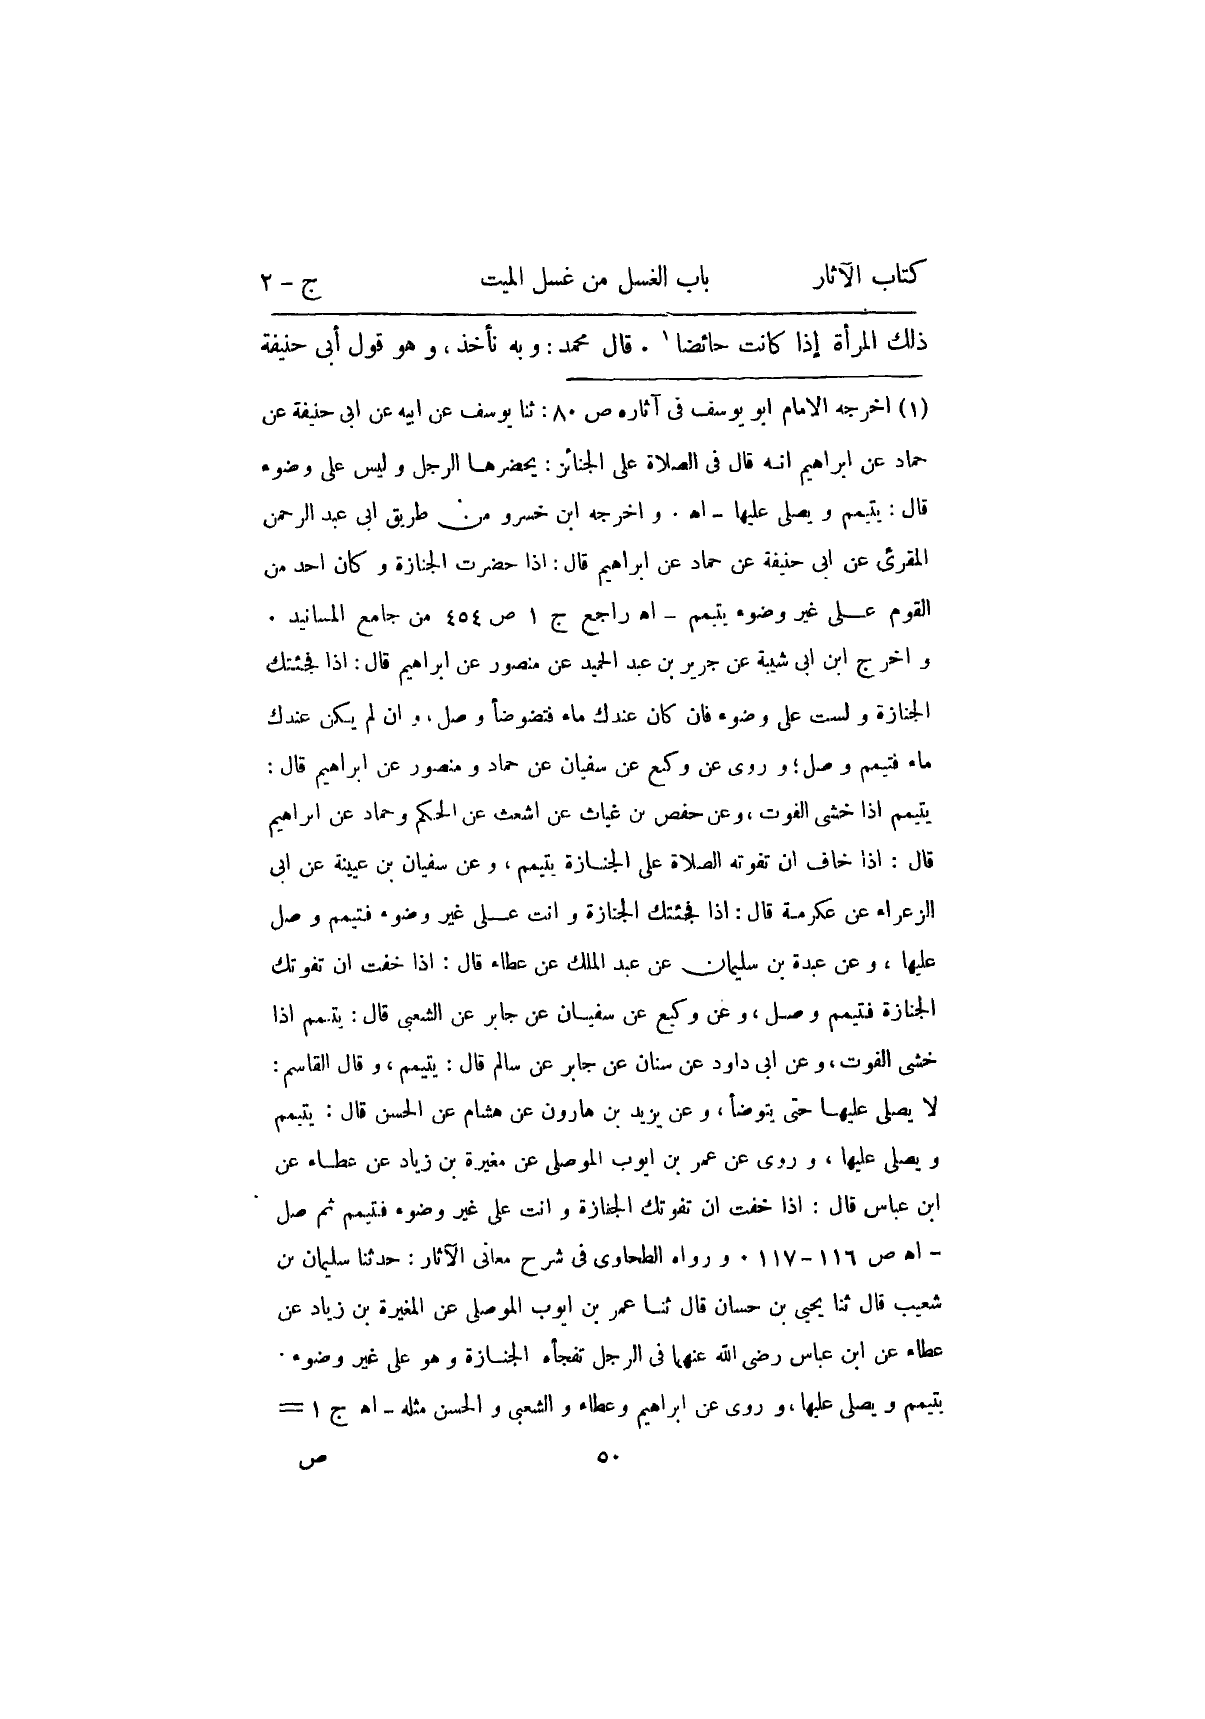 كتاب الآثار باب الغسل من غسل الميت ج - ٢
ذلك المرأة إذا كانت حائضا ١ . قال محمد : و به نأخذ ، و هو قول أبى حنيفة
(١) اخرجه الامام ابو يوسف فى آثاره ص ٨٠ : ثنا يوسف عن ابيه عن ابى حنيفة عن
حماد عن ابراهيم انه قال فى الصلاة على الجنائز : يحضرها الرجل و ليس على وضوء
قال : يتيمم و يصلى عليها - اه . و اخرجه ابن خسرو من طريق ابى عبد الرحمن
المقرئ عن ابى حنيفة عن حماد عن ابراهيم قال : اذا حضرت الجنازة و كان احد من
القوم على غير وضوء يتيمم - اه راجع ج ١ ص ٤٥٤ من جامع المسانيد .
و اخرج ابن ابى شيبة عن جرير بن عبد الحميد عن منصور عن ابراهيم قال : اذا فجئتك
الجنازة و لست على وضوء فان كان عندك ماء فتضوضأ و صل ، و ان لم يكن عندك
ماء فتيمم و صل ؛ و روى عن وكيع عن سفيان عن حماد و منصور عن ابراهيم قال :
يتيمم اذا خشى الفوت ، وعن حفص بن غياث عن اشعث عن الحكم وحماد عن ابراهيم
قال : اذا خاف ان تفوته الصلاة على الجنازة يتيمم ، و عن سفيان بن عيينة عن ابى
الزعراء عن عكرمة قال : اذا فجئتك الجنازة و انت على غير وضوء فتيمم و صل
عليها ، و عن عبدة بن سليمان عن عبد الملك عن عطاء قال : اذا خفت ان تفوتك
الجنازة فتيمم و صل ، و عن وكيع عن سفيان عن جابر عن الشعبى قال : يتيمم اذا
خشى الفوت ، و عن ابى داود عن سنان عن جابر عن سالم قال : يتيمم ، و قال القاسم :
لا يصلى عليها حتى يتوضأ ، و عن يزيد بن هارون عن هشام عن الحسن قال : يتيمم
و يصلى عليها ، و روى عن عمر بن ايوب الموصلى عن مغيرة بن زياد عن عطاء عن
ابن عباس قال : اذا خفت ان تفوتك الجنازة و انت على غير وضوء فتيمم ثم صل
- اه ص ١١٦ - ١١٧ . و رواه الطحاوى فى شرح معانى الآثار : حدثنا سليمان بن
شعيب قال ثنا يحيى بن حسان قال ثنا عمر بن ايوب الموصلى عن المغيرة بن زياد عن
عطاء عن ابن عباس رضى الله عنهما فى الرجل تفجأه الجنازة و هو على غير وضوء .
يتيمم و يصلى عليها ، و روى عن ابراهيم وعطاء و الشعبى و الحسن مثله - اه ج ١ =
٥٠ ص